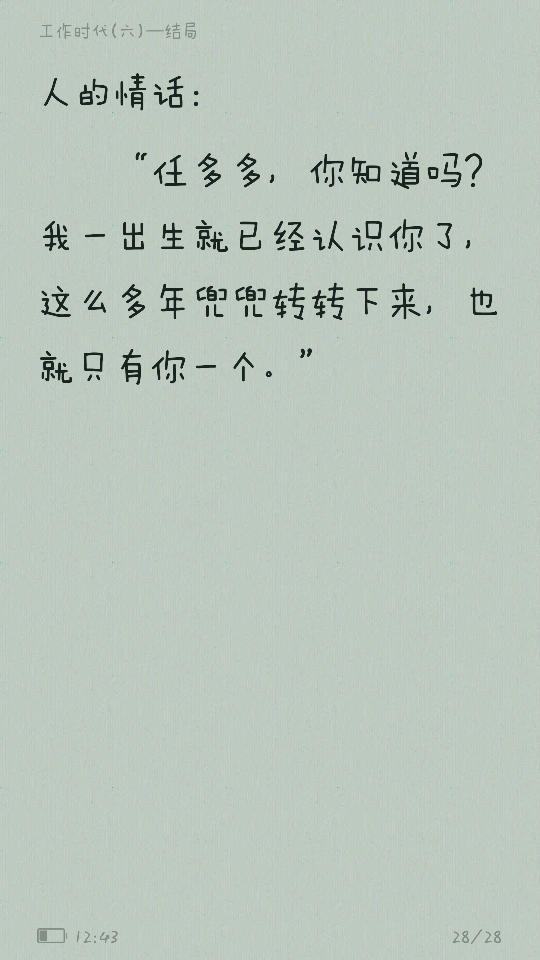 工作时代(六)—结局
人的情话:
“任多多, 你知道吗?
我一出生就已经认识你了,
这么多年兜兜转转下来, 也
就只有你一个。”
12:43
28/28